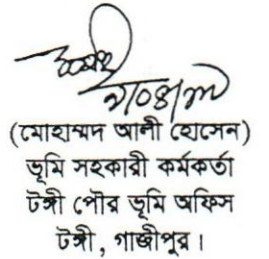 (মোহাম্মদ আলী হোসেন)
ভূমি সহকারী কর্মকর্তা
টঙ্গী পৌর ভূমি অফিস
টঙ্গী, গাজীপুর।